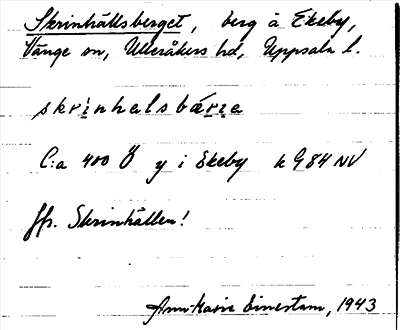 Skrinhällsberget, berg å Ekeby,
Vänge sn, Ulleråkers hd, Uppsala l.
skrinhalsbärie
C:a 400 Ö y i Ekeby k 984 NV
Jfr. Skrinhällen!
Ann-Marie Einerstam, 1943